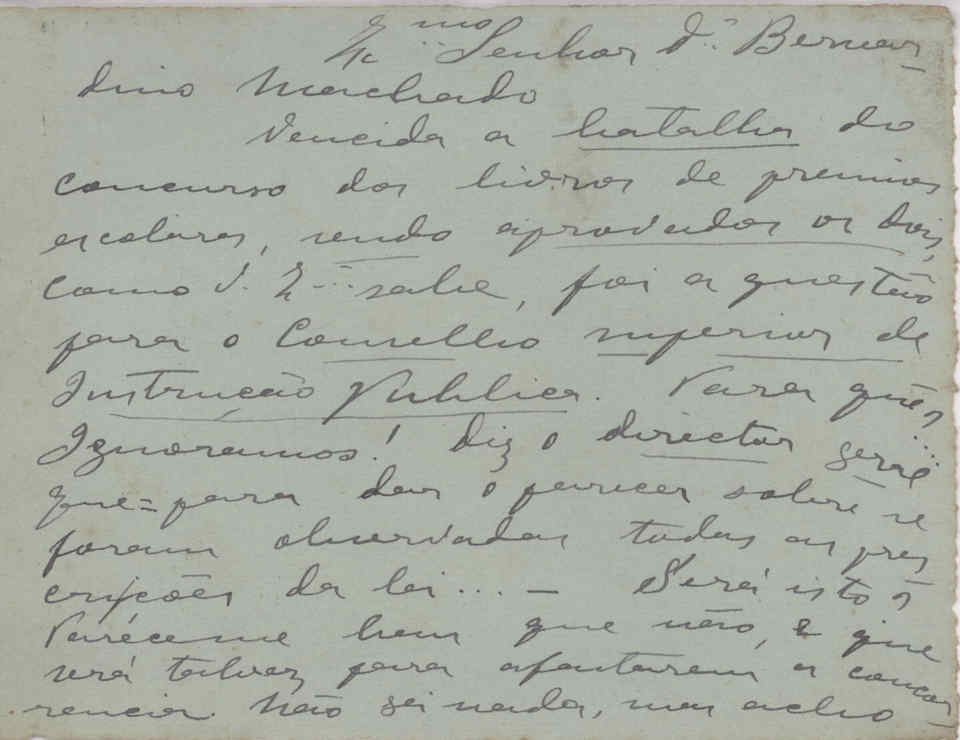 Exmo Senhor Dr Bernar-
dino Machado
Vencida a batalha do
concurso dos livros de premios
escolares, sendo aprovados os dois,
como V. Exª sabe, foi a questão
para o Conselho superior de
Instrucção Publica. Para quê?
Ignoramos! Diz o director geral
que = para dar o parecer sobre se
foram observadas todas as pres
cripções da lei... - Será isto?
Paréceme bem que não, e que
será talvez para afastarem a concor-
rencia. Não sei nada, mas acho